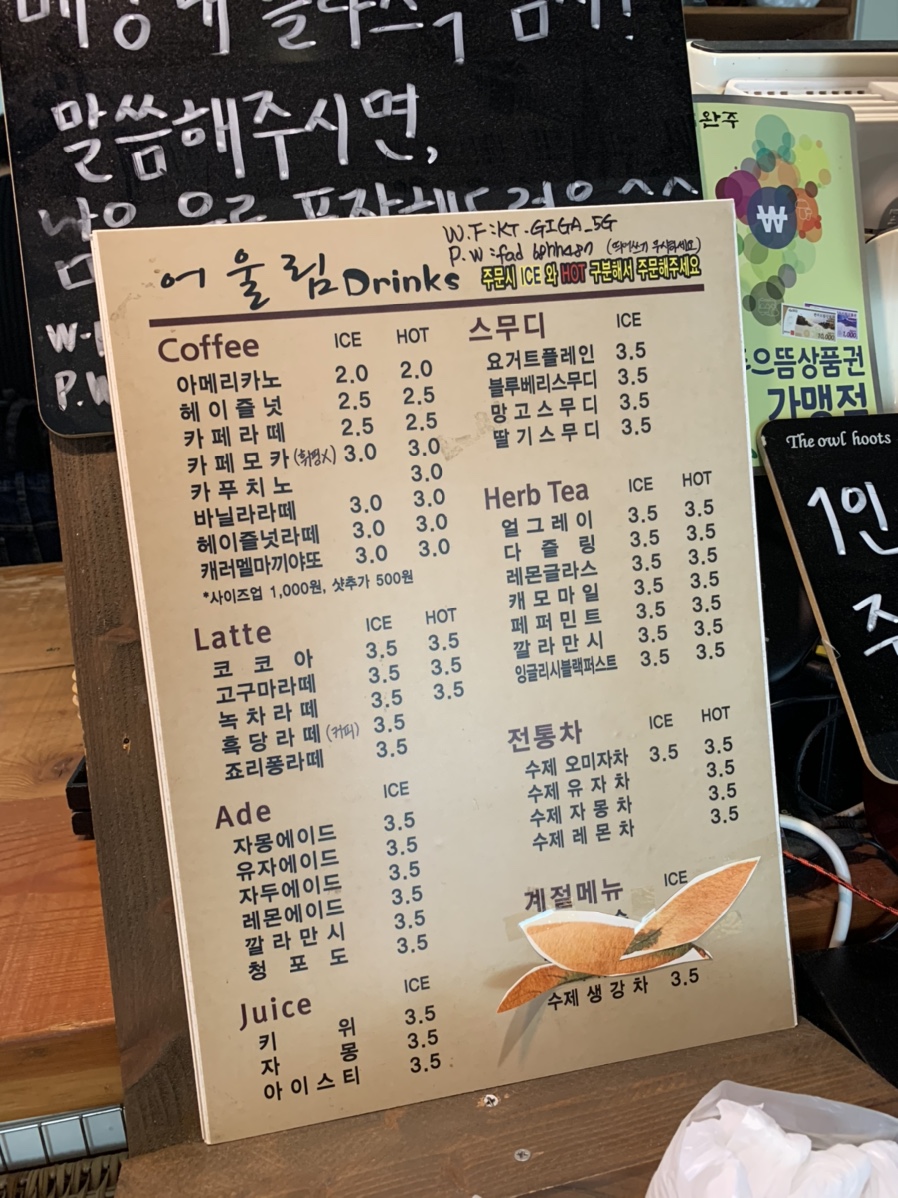 말씀해주시면,
W.F:KT.GIGA_5G
P.W:fad (띄어쓰기 무시하세요)
어울림 Drinks
주문시 ICE 와 HOT 구분해서 주문해주세요
Coffee ICE HOT
아메리카노 2.0 2.0
헤이즐넛 2.5 2.5
카페라떼 2.5 2.5
카페모카(휘핑X) 3.0 3.0
카푸치노 3.0
바닐라라떼 3.0 3.0
헤이즐넛라떼 3.0 3.0
캐러멜마끼야또 3.0 3.0
*사이즈업 1,000원, 샷추가 500원
Latte ICE HOT
코코아 3.5 3.5
고구마라떼 3.5 3.5
녹차라떼 3.5 3.5
흑당라떼(커피) 3.5
죠리퐁라떼 3.5
Ade ICE
자몽에이드 3.5
유자에이드 3.5
자두에이드 3.5
레몬에이드 3.5
깔라만시 3.5
청포도 3.5
Juice ICE
키위 3.5
자몽 3.5
아이스티 3.5
스무디 ICE
요거트플레인 3.5
블루베리스무디 3.5
망고스무디 3.5
딸기스무디 3.5
Herb Tea ICE HOT
얼그레이 3.5 3.5
다즐링 3.5 3.5
레몬글라스 3.5 3.5
캐모마일 3.5 3.5
페퍼민트 3.5 3.5
깔라만시 3.5 3.5
잉글리시블랙퍼스트 3.5 3.5
전통차 ICE HOT
수제 오미자차 3.5 3.5
수제 유자차 3.5
수제 자몽차 3.5
수제 레몬차 3.5
계절메뉴 ICE
수제 생강차 3.5
완주
으뜸상품권
가맹점
The owl hoots
1인